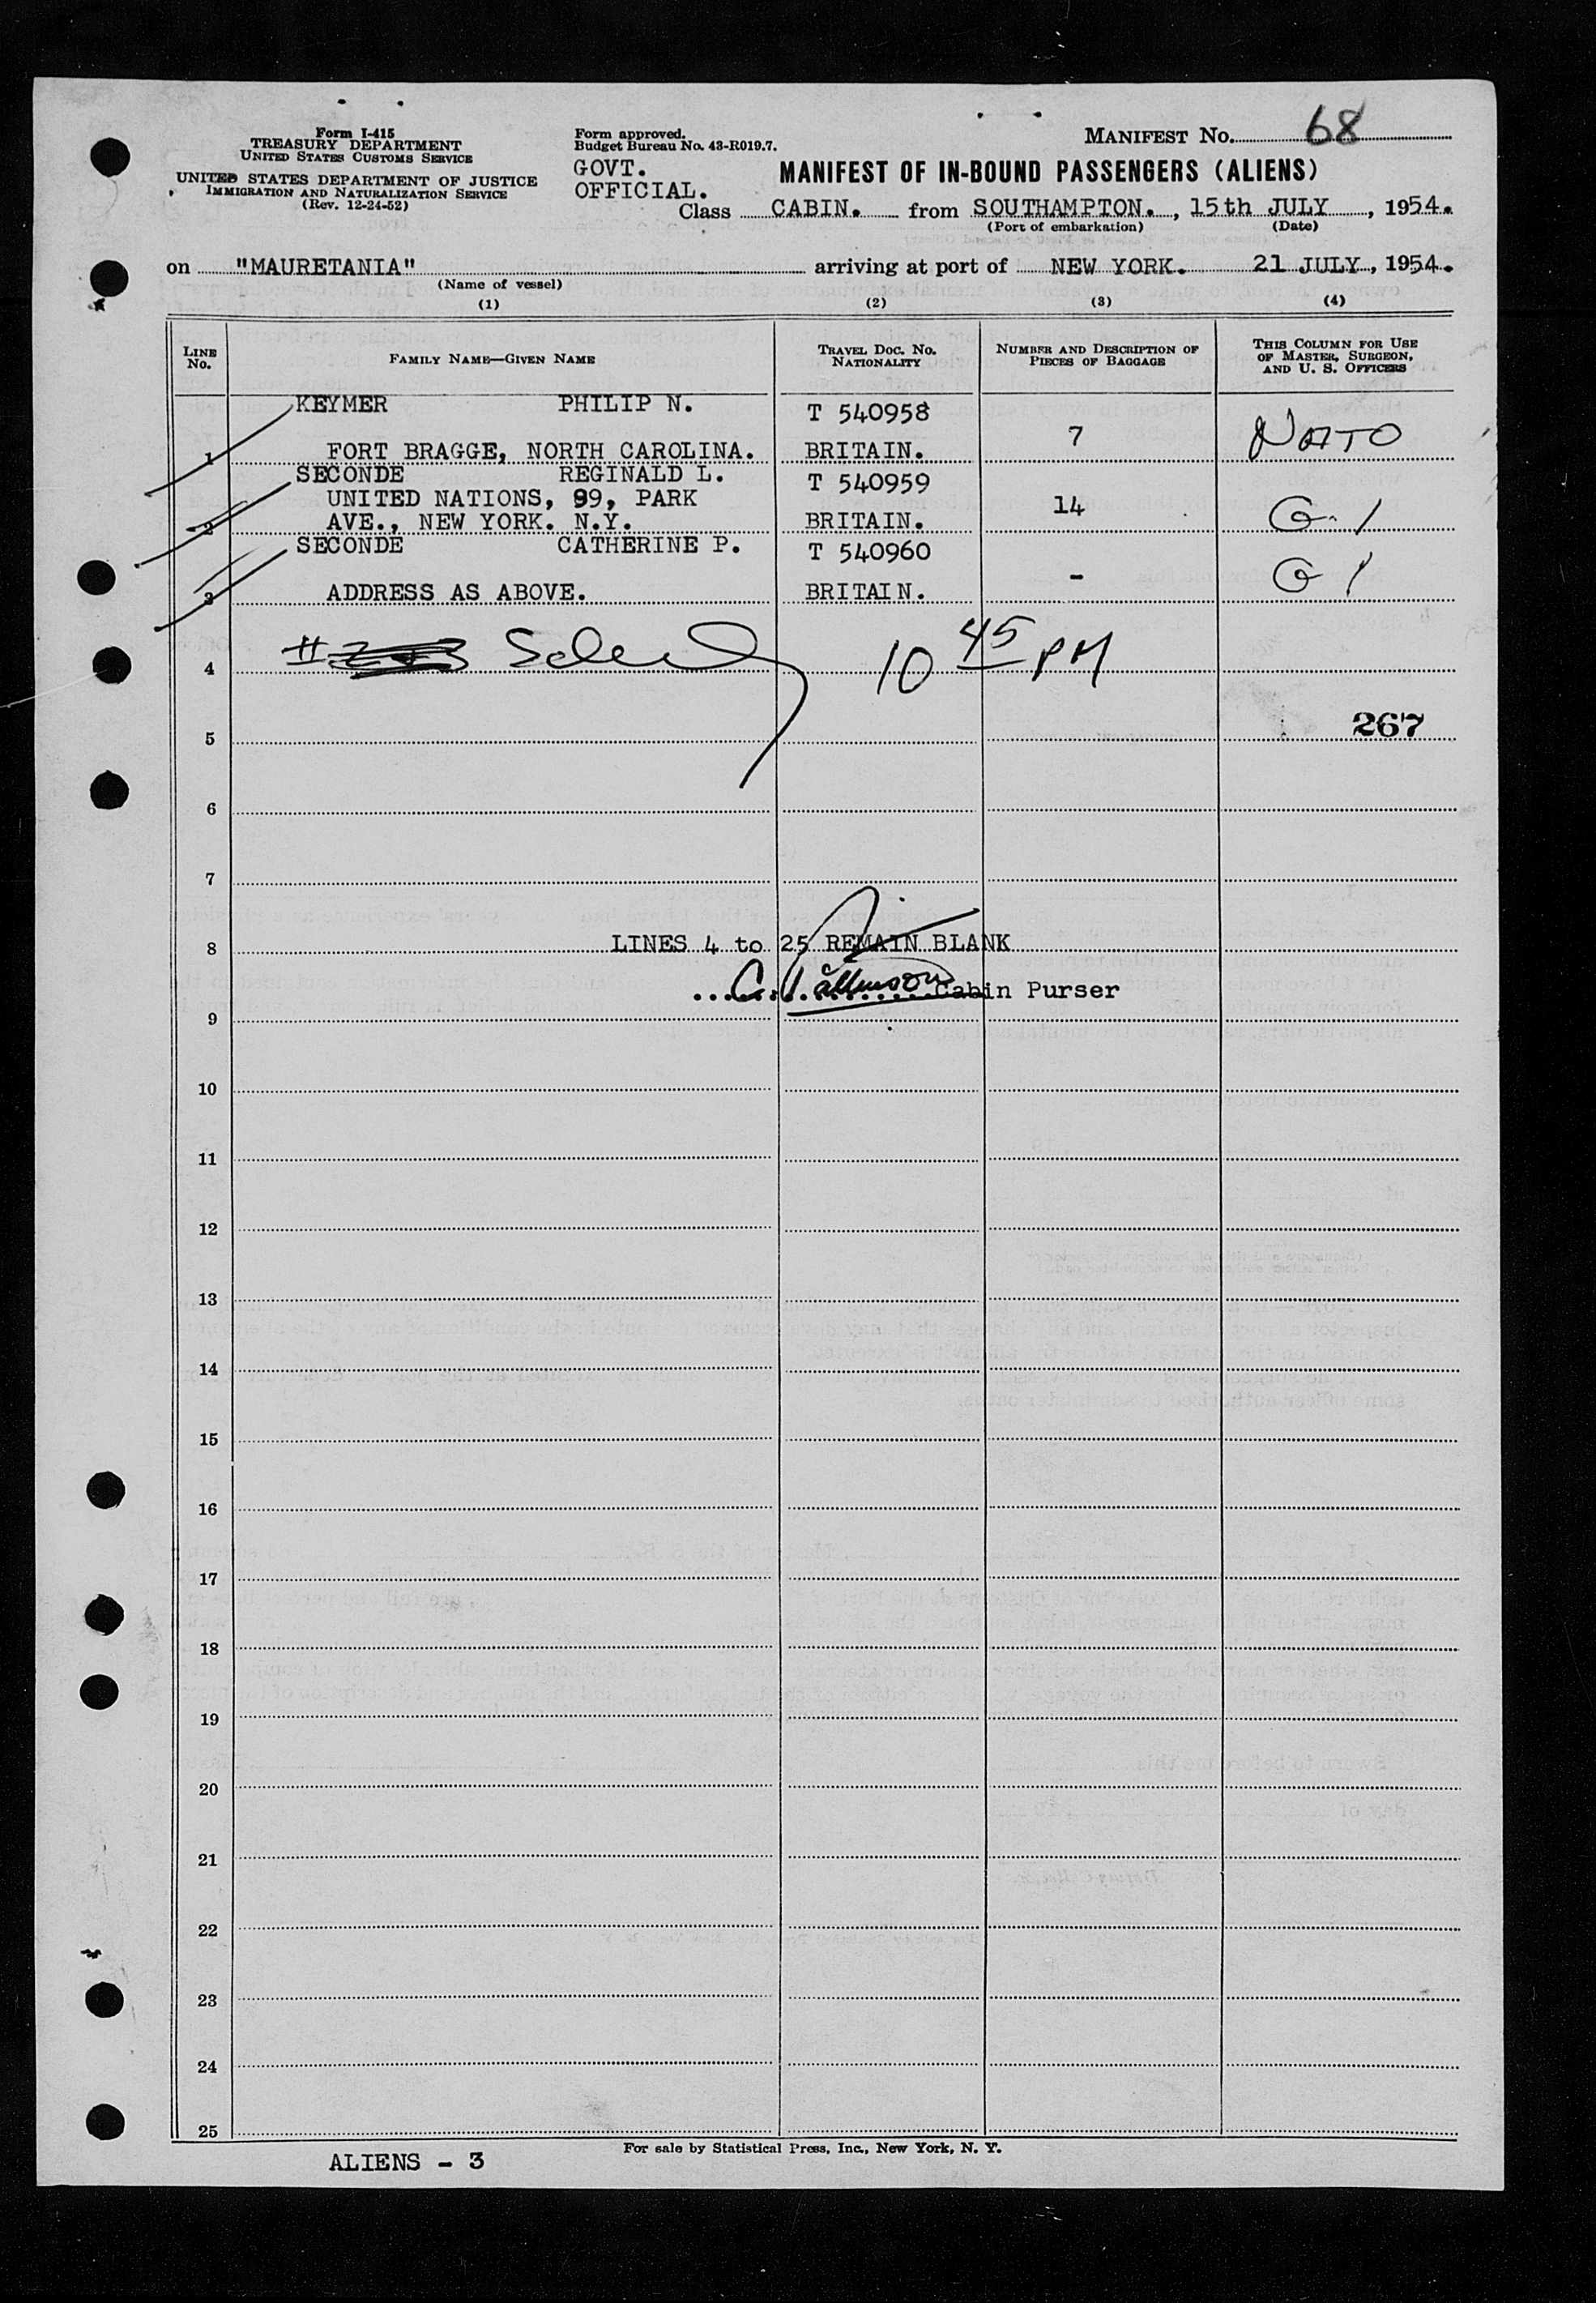 Form I-415
TREASURY DEPARTMENT
UNITED STATES CUSTOMS SERVICE
UNITED STATES DEPARTMENT OF JUSTICE
IMMIGRATION AND NATURALIZATION SERVICE
(Rev. 12-24-52)
Form approved.
Budget Bureau No. 43-R019.7.
GOVT.
OFFICIAL.
MANIFEST NO. 68
MANIFEST OF IN-BOUND PASSENGERS (ALIENS)
Class CABIN. from SOUTHAMPTON. , 15th JULY , 1954.
(Port of embarkation) (Date)
on "MAURETANIA" arriving at port of NEW YORK. 21 JULY , 1954.
(Name of vessel)
(1) (2) (3) (4)
LINE No. FAMILY NAME—GIVEN NAME TRAVEL DOC. NO. NATIONALITY NUMBER AND DESCRIPTION OF PIECES OF BAGGAGE THIS COLUMN FOR USE OF MASTER, SURGEON, AND U. S. OFFICERS
KEYMER PHILIP N. T 540958
1 FORT BRAGGE, NORTH CAROLINA. BRITAIN. 7 NATO
SECONDE REGINALD L. T 540959
UNITED NATIONS, 99, PARK 14
2 AVE., NEW YORK. N.Y. BRITAIN. G 1
SECONDE CATHERINE P. T 540960
3 ADDRESS AS ABOVE. BRITAIN. - G 1
4 10 45 PM
5 267
6
7
8 LINES 4 to 25 REMAIN BLANK
Cabin Purser
9
10
11
12
13
14
15
16
17
18
19
20
21
22
23
24
25
For sale by Statistical Press, Inc., New York, N. Y.
ALIENS - 3